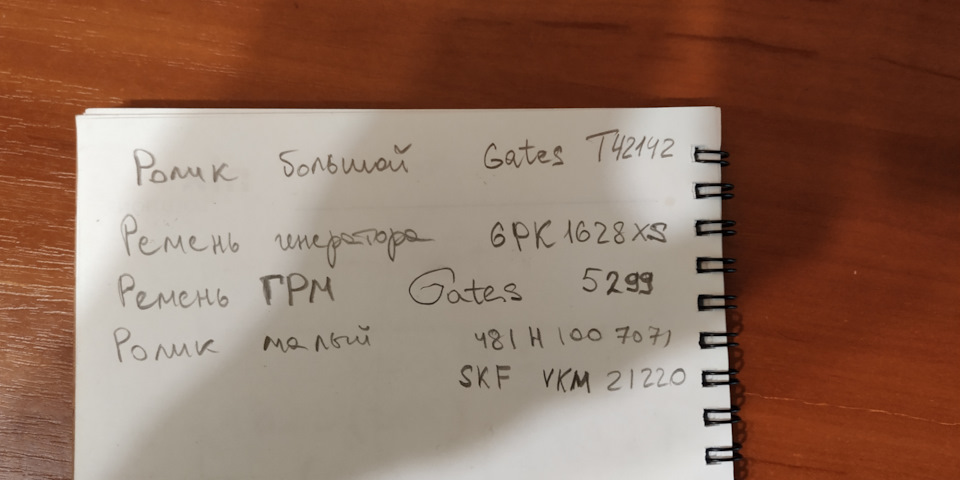 Ролик большой Gates T42142
Ремень генератора 6PK1628XS
Ремень ГРМ Gates 5299
Ролик малый 481H1007071
SKF VKM 21220